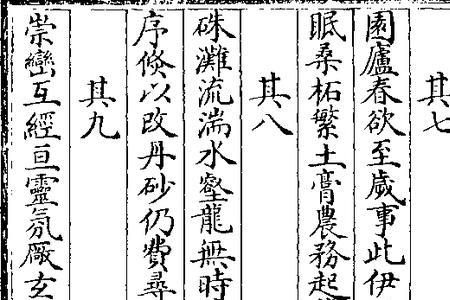 其七
園廬春欲至歲事此伊
眠桑柘繁土膏農務起
其八
硃灘流湍水壑龍無時
序倐以改丹砂仍費尋
其九
崇巒互經亘靈氛厰玄